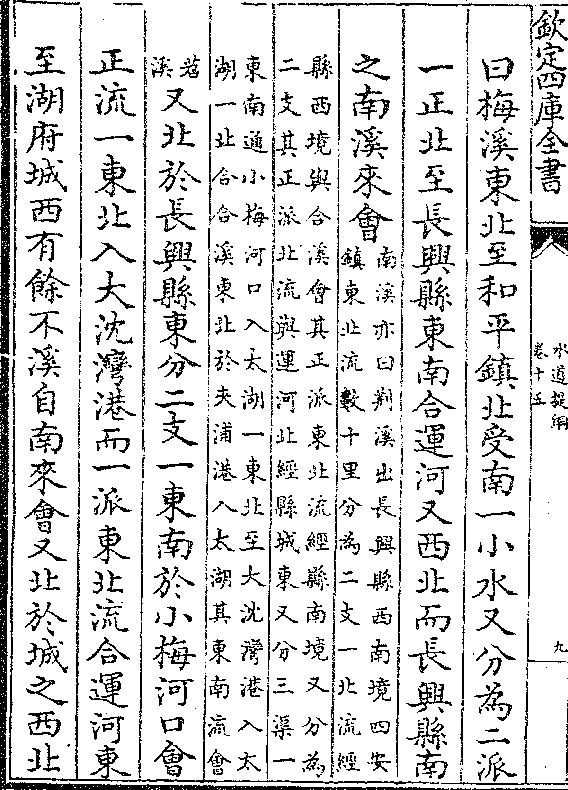 欽定四庫全書
水道提綱
卷十五
九
曰梅溪東北至和平鎮北受南一小水又分為二派
一正北至長興縣東南合運河又西北而長興縣南
之南溪來會
南溪亦曰荆溪出長興縣西南境四安
鎮東北流數十里分為二支一北流經
縣西境與合溪會其正派東北流經縣南境又分為
二支其正派北流與運河北經縣城東又分三渠一
東南通小梅河口入太湖一東北至大沈灣港入太
湖一北合合溪東北於夾浦港入太湖其東南流會
苕
溪
又北於長興縣東分二支一東南於小梅河口會
正流一東北入大沈灣港而一派東北流合運河東
至湖府城西有餘不溪自南來會又北於城之西北